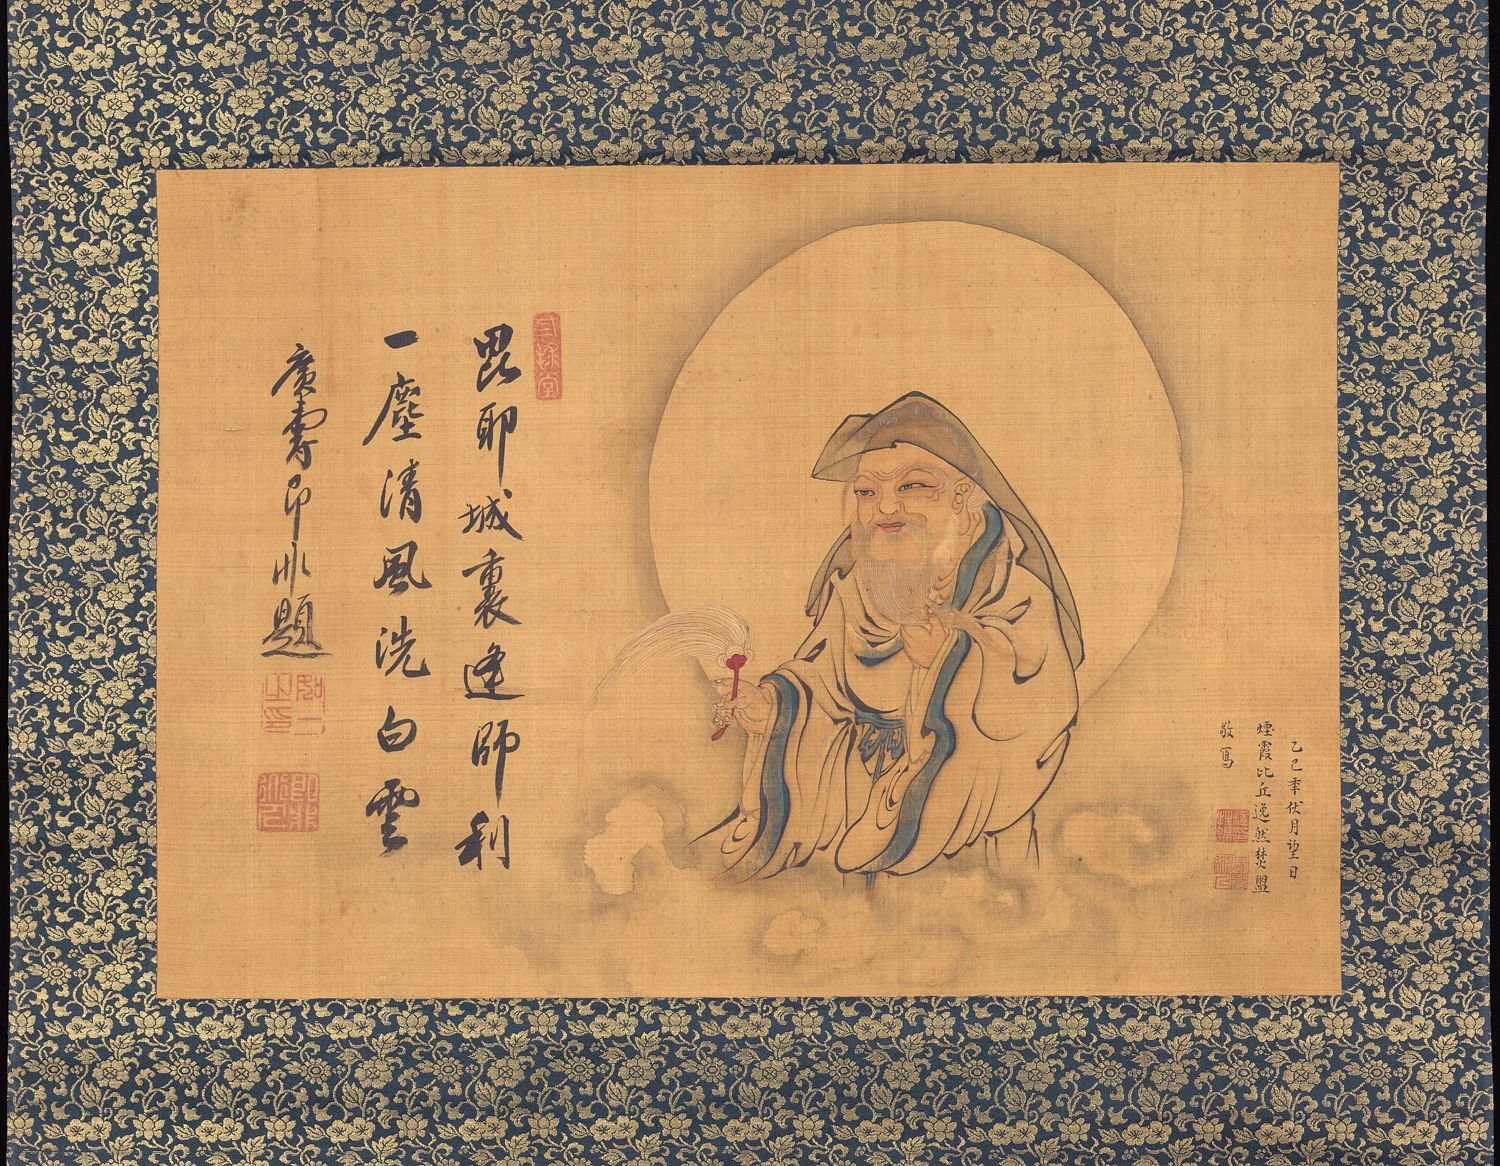 毘耶城裏逢師利
一塵清風洗白雲
廣壽即非題
乙巳年伏月望日
煙霞比丘逸然焚盥
敬寫